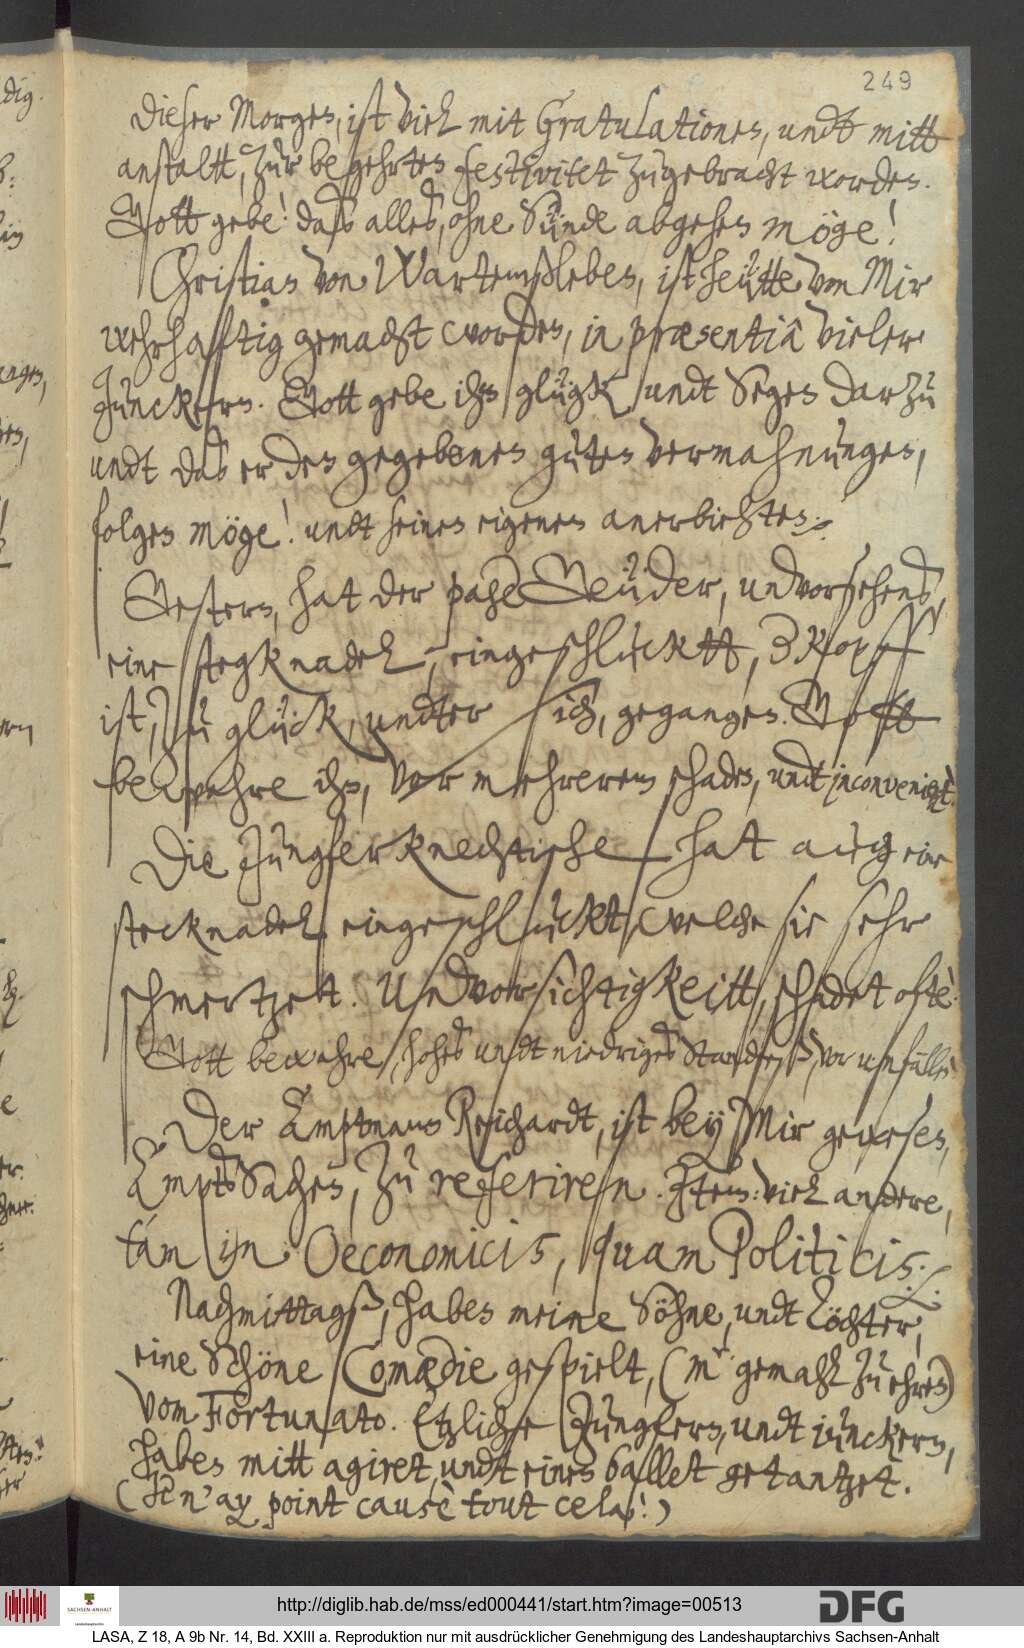 249
Dieser Morgen, ist viel mit Gratulationen, undt mitt
anstaltt, zur begehrten festivitet zugebracht worden.
Gott gebe! daß alles, ohne Sünde abgehen möge!
Christian von Wartemßleben, ist heütte von Mir
wehrhafftig gemacht worden, in præsentiâ vieler
Junckern. Gott gebe ihm glügk, undt Segen darzu
undt das er den gegebenen guten vermahnungen,
folgen möge! undt seinem eigenem anerbiehten ./.
Gestern, hat der page Geüder, undvorsehends,
eine stegknadel, eingeschlucktt, 3 Kopff
ist, zu glück, undter sich, gegangen. Gott
bewahre ihn, vor mehrerem schaden, undt inconvenientz.
Die Jungfer Knechtische hat auch eine
stecknadel eingeschluckt, welche sie sehr
schmertzet. Undvorsichtigkeitt, schadet ofte.
Gott bewahre, hohes undt niedriges Standeß, vor unfälle.
Der Amptmann Reichardt, ist bey Mir gewesen,
Ampts Sachen, zu referiren. Jtem: viel andere,
tám in Oeconomicis, quam Politicis. ./.
Nachmittagß, haben meine Söhne, undt Töchter,
eine Schöne Comædie gespielt, (mr gemahl zu ehren)
vom Fortunato. Etzliche Jungfern, undt iunckern,
haben mitt agiret, undt einen ballet getantzet.
(Je n'ay point causè tout cela!)
http://diglib.hab.de/mss/ed000441/start.htm?image=00513
DFG
SACHSEN-ANHALT
LASA, Z 18, A 9b Nr. 14, Bd. XXIII a. Reproduktion nur mit ausdrücklicher Genehmigung des Landeshauptarchivs Sachsen-Anhalt